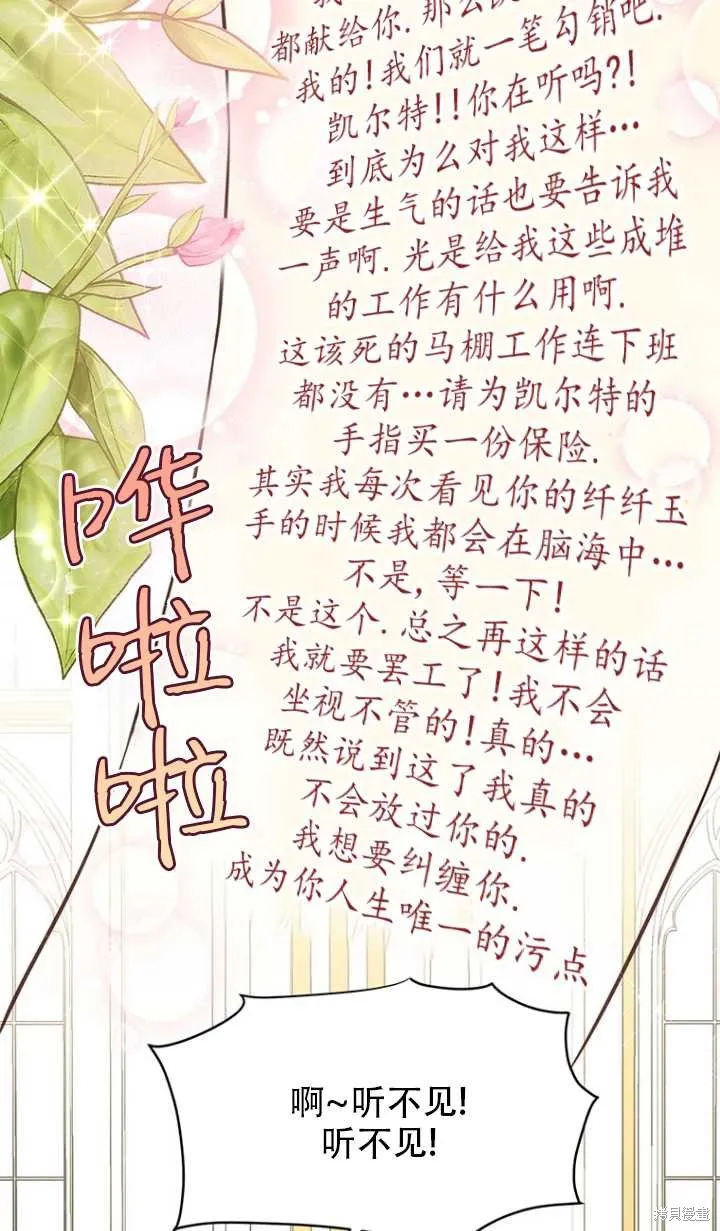 都献给你. 那么
我的! 我们就一笔勾销吧.
凯尔特!! 你在听吗?!
到底为么对我这样…
要是生气的话也要告诉我
一声啊. 光是给我这些成堆
的工作有什么用啊.
这该死的马棚工作连下班
都没有…请为凯尔特的
手指买一份保险.
其实我每次看见你的纤纤玉
手的时候我都会在脑海中…
不是, 等一下!
不是这个. 总之再这样的话
我就要罢工了! 我不会
坐视不管的! 真的…
既然说到这了我真的
不会放过你的.
我想要纠缠你.
成为你人生唯一的污点
哗
啦
啦
啊~听不见!
听不见!
拷贝漫畫